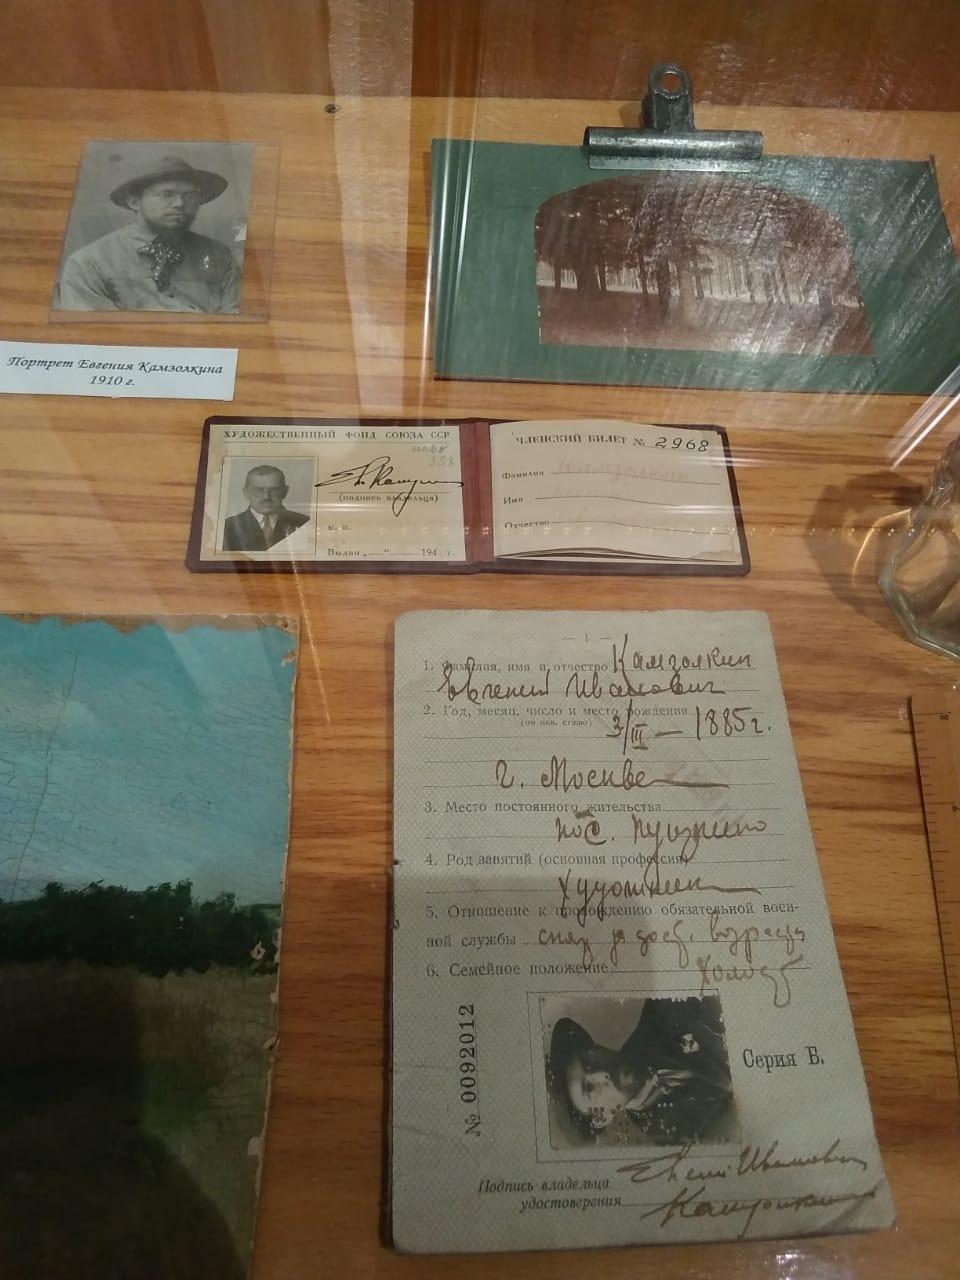 Портрет Евгения Камзолкина
1910 г.
ХУДОЖЕСТВЕННЫЙ ФОНД СОЮЗА ССР
358
(подпись владельца)
м. п.
Выдан „ — “ 194 г.
ЧЛЕНСКИЙ БИЛЕТ № 2968
Фамилия Камзолкин
Имя
Отчество
— 1 —
1. Фамилия, имя и отчество Камзолкин
Евгений Иванович
2. Год, месяц, число и место рождения
(по нов. стилю) 3/III — 1885 г.
г. Москве
3. Место постоянного жительства
пос. Пушкино
4. Род занятий (основная профессия)
Художник
5. Отношение к прохождению обязательной воен-
ной службы снят по возраста
6. Семейное положение холост
№ 0092012
Серия Б.
Подпись владельца Евгений Иванович
удостоверения Камзолкин